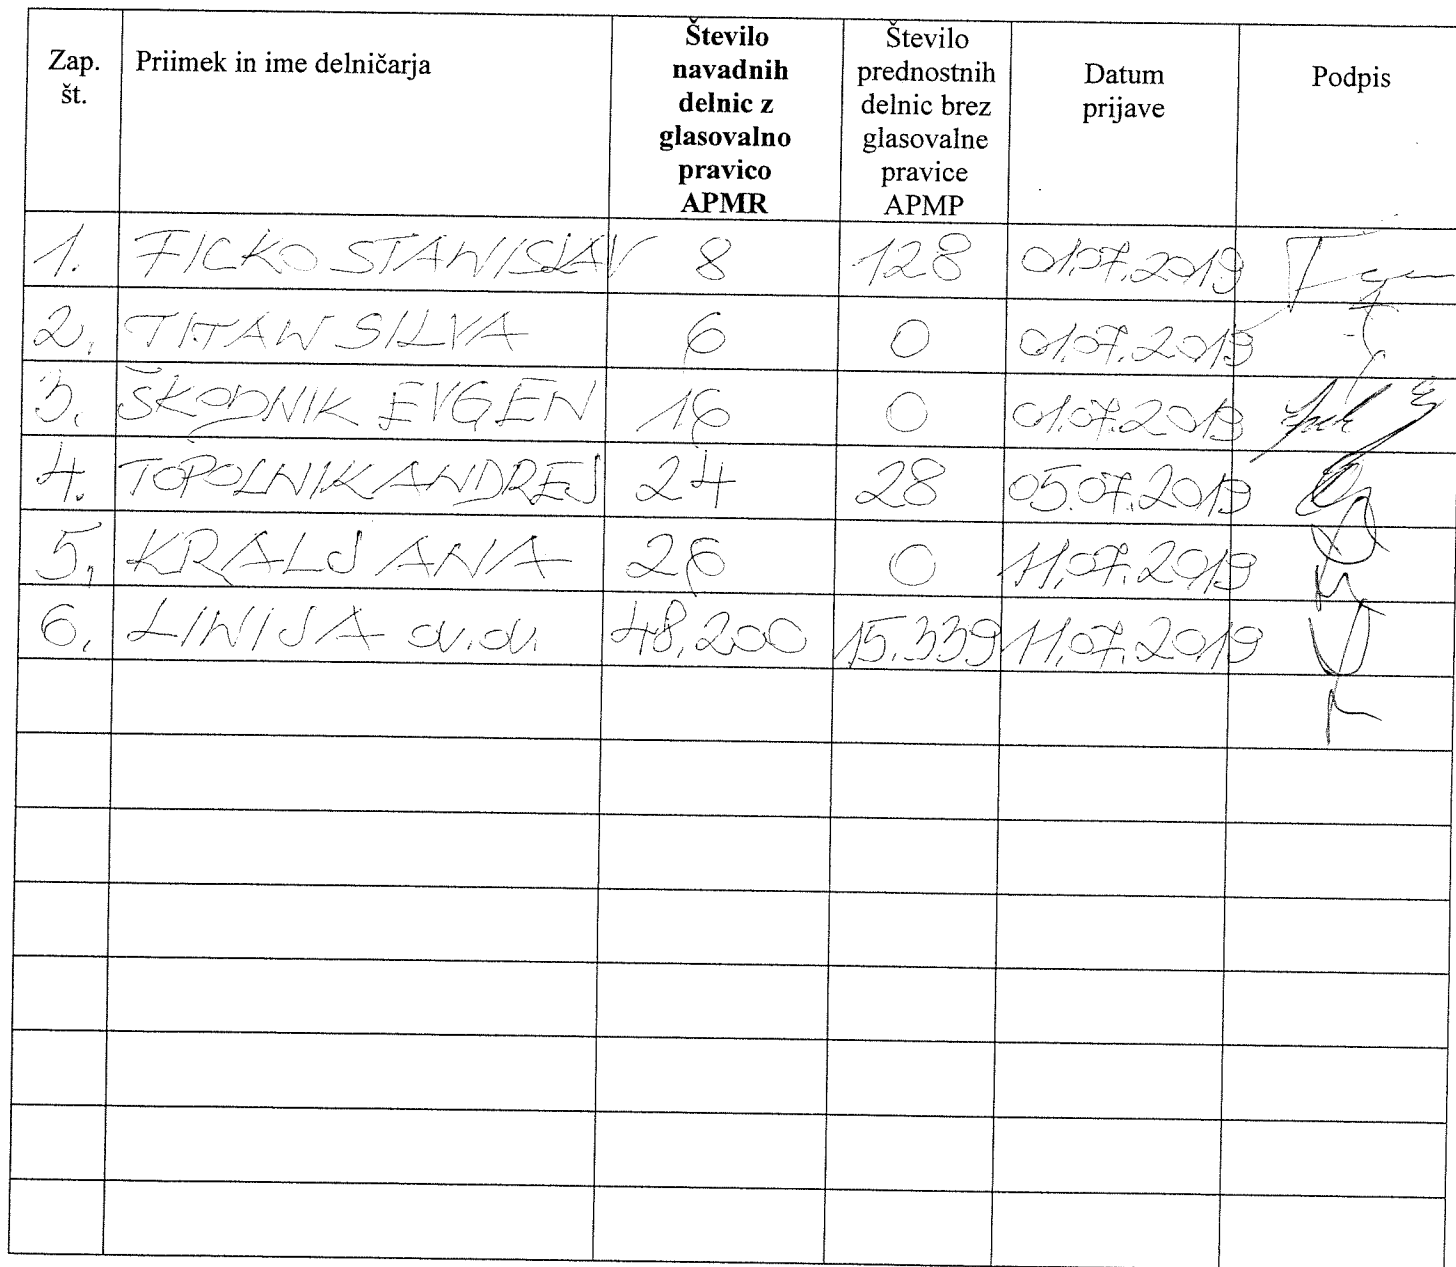 Zap. št. | Priimek in ime delničarja | Število navadnih delnic z glasovalno pravico APMR | Število prednostnih delnic brez glasovalne pravice APMP | Datum prijave | Podpis
1. FICKO STANISLAV 8 128 01.07.2019
2. TITAN SILVA 6 0 01.07.2019
3. ŠKODNIK EVGEN 16 0 01.07.2019
4. TOPOLNIK ANDREJ 24 28 05.07.2019
5. KRALJ ANA 26 0 11.07.2019
6. LINIJA d.d. 48.200 15.339 11.07.2019